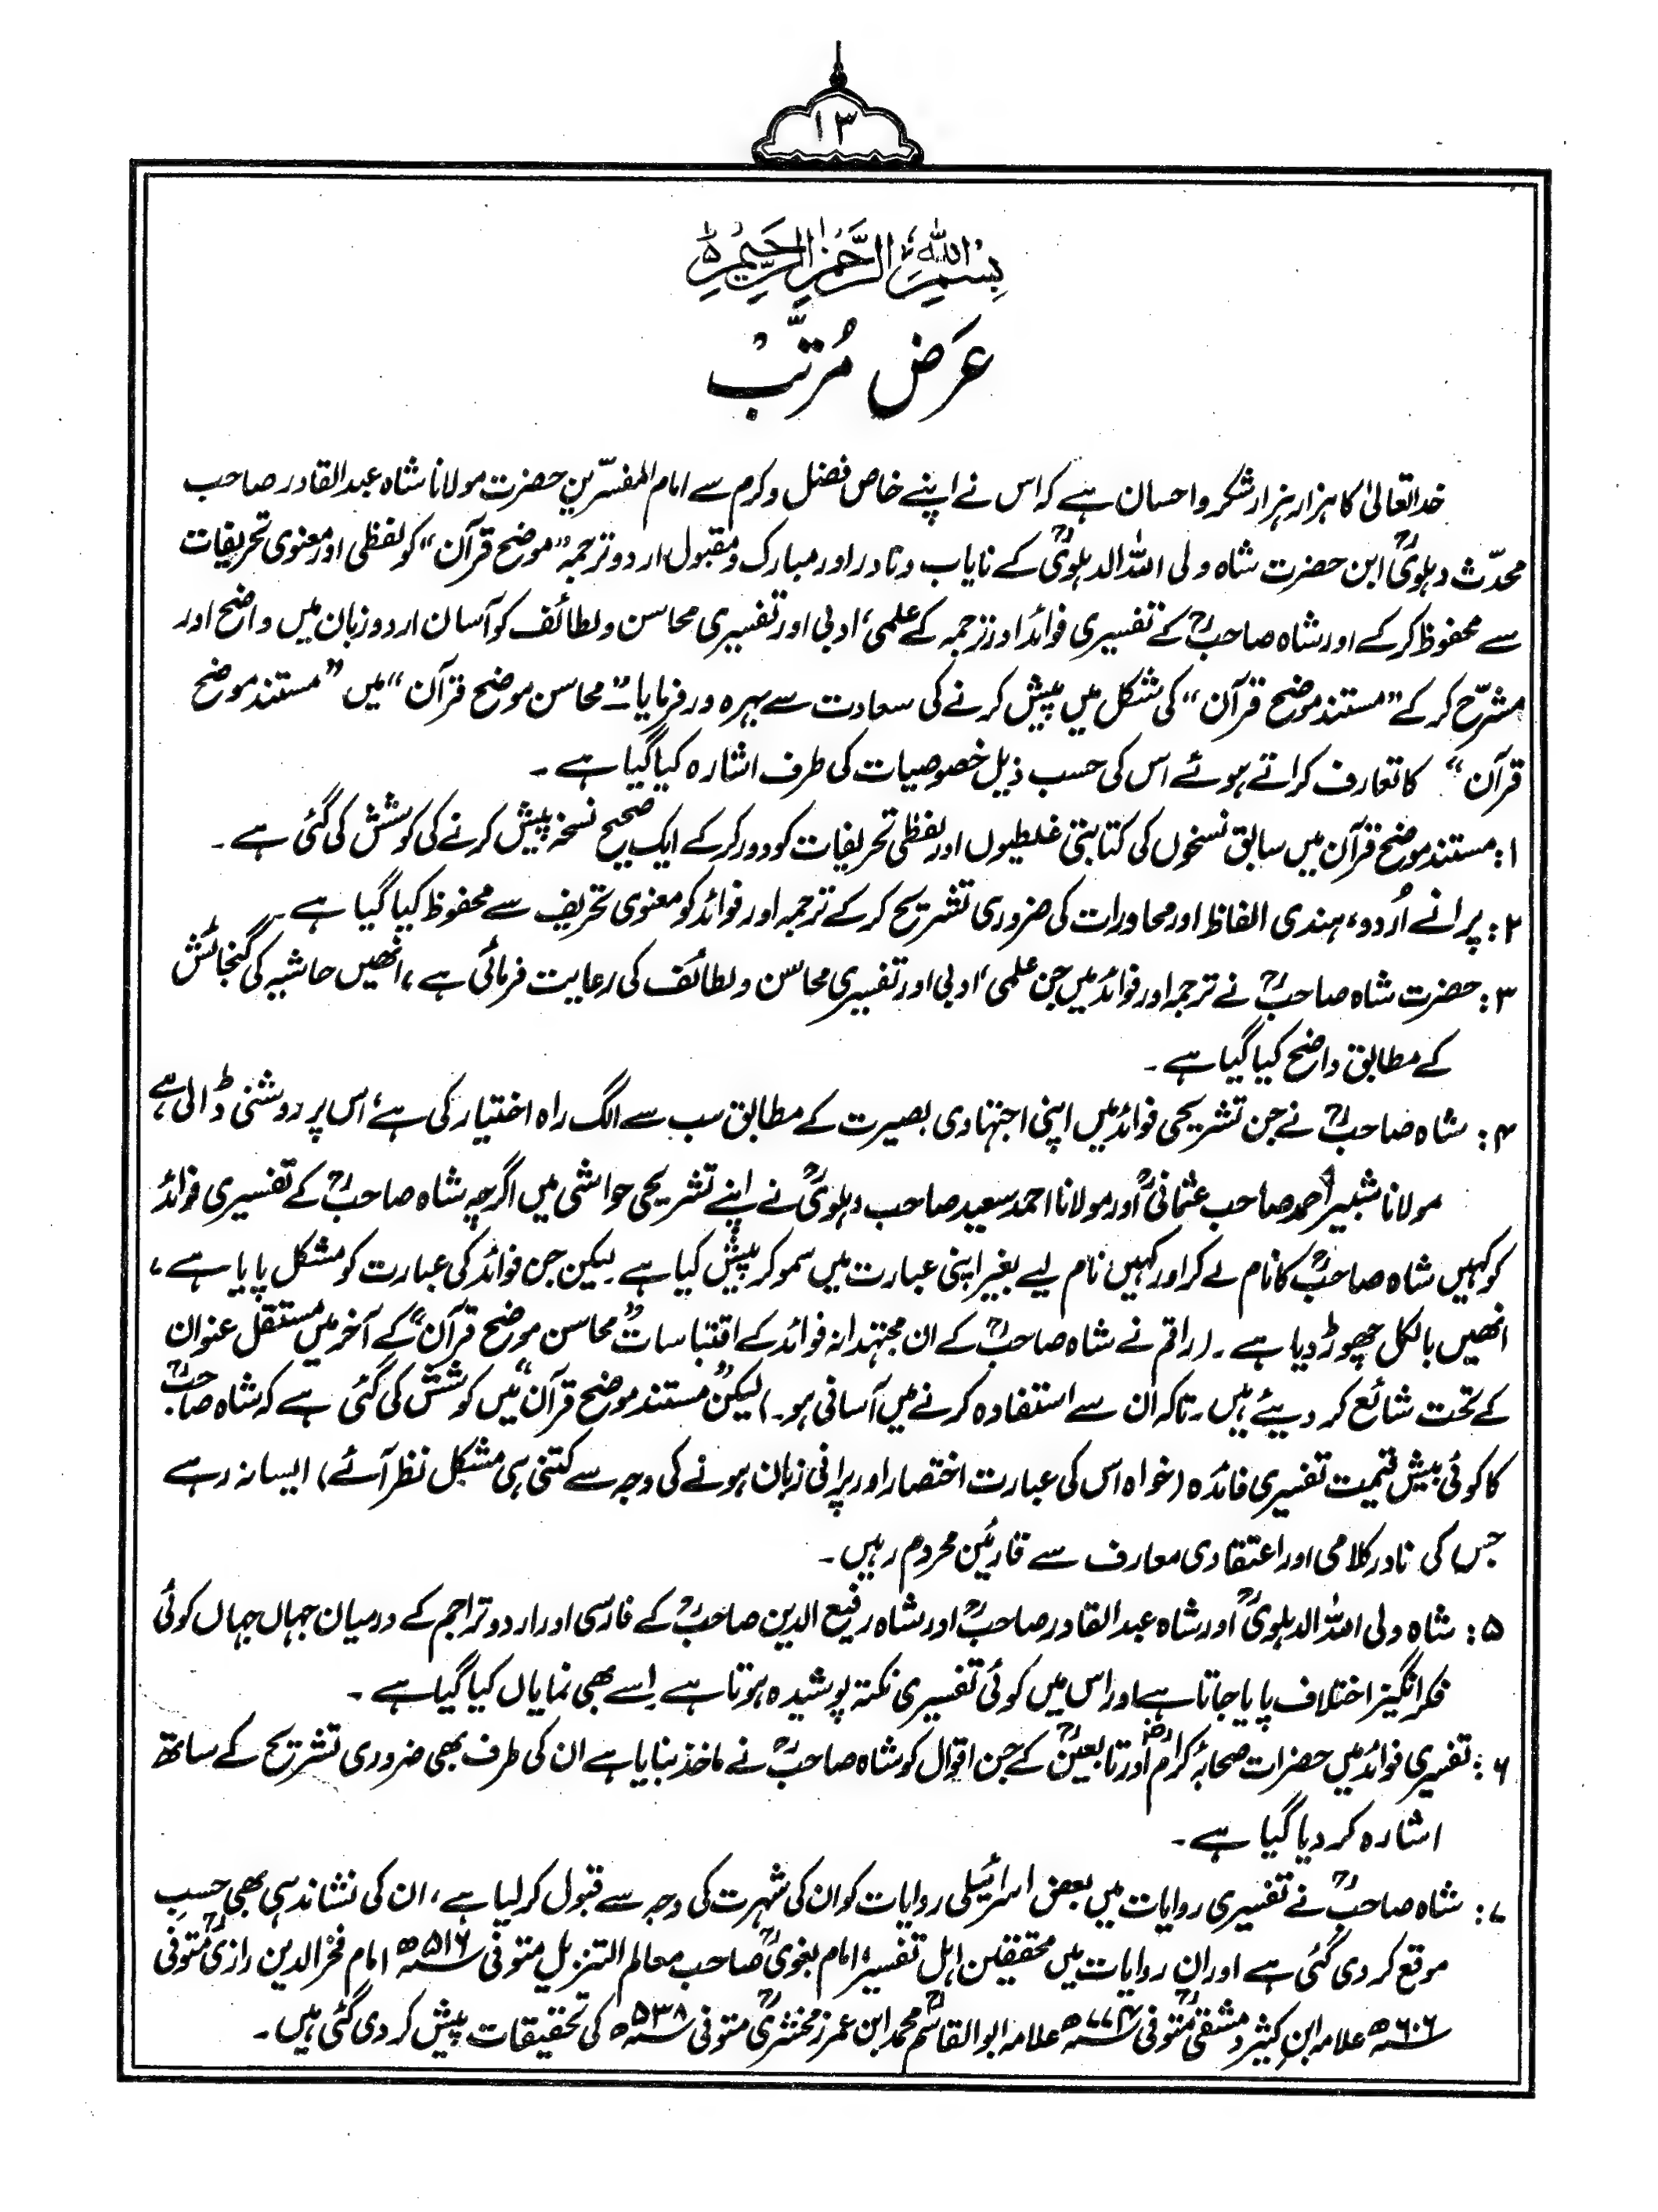 ۱۳
بِسْمِ اللّٰهِ الرَّحْمٰنِ الرَّحِيْمِ ۵
عرَضِ مُرتَّبْ
خدا تعالیٰ کا ہزار ہزار شکر و احسان ہے کہ اس نے اپنے خاص فضل و کرم سے امام المفسّرین حضرت مولانا شاہ عبدالقادر صاحب
محدّث دہلویؒ ابن حضرت شاہ ولی اللہ الدہلویؒ کے نایاب و نادر اور مبارک و مقبول اردو ترجمہ ”موضح قرآن“ کو لفظی اور معنوی تحریفات
سے محفوظ کرکے اور شاہ صاحبؒ کے تفسیری فوائد اور ترجمہ کے علمی، ادبی اور تفسیری محاسن و لطائف کو آسان اردو زبان میں واضح اور
مشرّح کر کے ”مستند موضح قرآن“ کی شکل میں پیش کرنے کی سعادت سے بہرہ ور فرمایا۔ ”محاسن موضح قرآن“ میں ”مستند موضح
قرآن“ کا تعارف کراتے ہوئے اس کی حسب ذیل خصوصیات کی طرف اشارہ کیا گیا ہے ۔
۱: مستند موضح قرآن میں سابق نسخوں کی کتابتی غلطیوں اور لفظی تحریفات کو دور کرکے ایک صحیح نسخہ پیش کرنے کی کوشش کی گئی ہے ۔
۲: پرانے اُردو، ہندی الفاظ اور محاورات کی ضروری تشریح کر کے ترجمہ اور فوائد کو معنوی تحریف سے محفوظ کیا گیا ہے ۔
۳: حضرت شاہ صاحبؒ نے ترجمہ اور فوائد میں جن علمی، ادبی اور تفسیری محاسن و لطائف کی رعایت فرمائی ہے، انھیں حاشیہ کی گنجائش
کے مطابق واضح کیا گیا ہے ۔
۴: شاہ صاحبؒ نے جن تشریحی فوائد میں اپنی اجتہادی بصیرت کے مطابق سب سے الگ راہ اختیار کی ہے، اس پر روشنی ڈالی ہے،
مولانا شبیر احمد صاحب عثمانیؒ اور مولانا احمد سعید صاحب دہلویؒ نے اپنے تشریحی حواشی میں اگرچہ شاہ صاحبؒ کے تفسیری فوائد
کو کہیں شاہ صاحبؒ کا نام لے کر اور کہیں نام لیے بغیر اپنی عبارت میں سمو کر پیش کیا ہے۔ لیکن جن فوائد کی عبارت کو مشکل پایا ہے،
انھیں بالکل چھوڑ دیا ہے ۔ (راقم نے شاہ صاحبؒ کے ان مجتہدانہ فوائد کے اقتباسات ”محاسن موضح قرآن“ کے آخر میں مستقل عنوان
کے تحت شائع کر دیئے ہیں۔ تاکہ ان سے استفادہ کرنے میں آسانی ہو۔) لیکن ”مستند موضح قرآن“ میں کوشش کی گئی ہے کہ شاہ صاحبؒ
کا کوئی بیش قیمت تفسیری فائدہ (خواہ اس کی عبارت اختصار اور پرانی زبان ہونے کی وجہ سے کتنی ہی مشکل نظر آئے) ایسا نہ رہے
جس کی نادر کلامی اور اعتقادی معارف سے قارئین محروم رہیں ۔
۵: شاہ ولی اللہ الدہلویؒ اور شاہ عبدالقادر صاحبؒ اور شاہ رفیع الدین صاحبؒ کے فارسی اور اردو تراجم کے درمیان جہاں جہاں کوئی
فکر انگیز اختلاف پایا جاتا ہے اور اس میں کوئی تفسیری نکتہ پوشیدہ ہوتا ہے اسے بھی نمایاں کیا گیا ہے ۔
۶: تفسیری فوائد میں حضرات صحابۂ کرامؓ اور تابعینؒ کے جن اقوال کو شاہ صاحبؒ نے ماخذ بنایا ہے ان کی طرف بھی ضروری تشریح کے ساتھ
اشارہ کر دیا گیا ہے ۔
۷: شاہ صاحبؒ نے تفسیری روایات میں بعض اسرائیلی روایات کو ان کی شہرت کی وجہ سے قبول کر لیا ہے، ان کی نشاندہی بھی حسب
موقع کر دی گئی ہے اور ان روایات میں محققین اہل تفسیر، امام بغویؒ صاحب معالم التنزیل متوفی ۵۱۶ھ امام فخر الدین رازیؒ متوفی
۶۰۶ھ علامہ ابن کثیر دمشقیؒ متوفی ۷۷۴ھ علامہ ابو القاسم محمد ابن عمر زمخشریؒ متوفی ۵۳۸ھ کی تحقیقات پیش کر دی گئی ہیں ۔